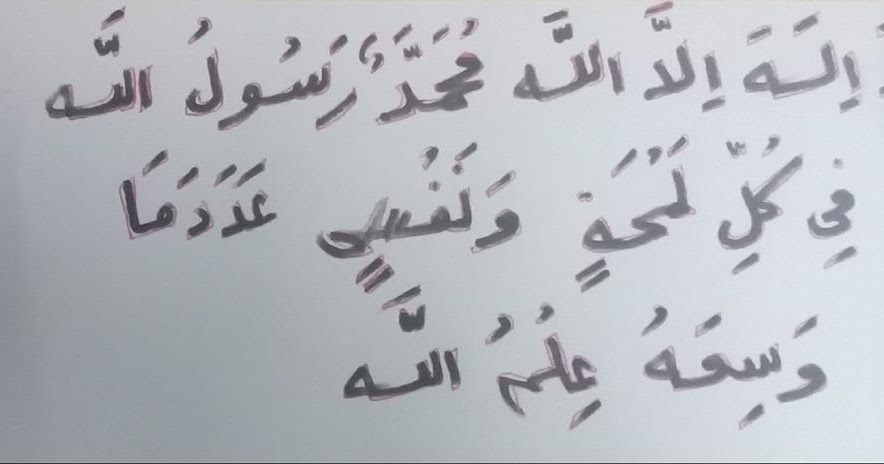 اِلٰهَ اِلَّا اللّٰه مُحَمَّدٌ رَسُولُ اللّٰه
فِى كُلِّ لَمْحَةٍ وَنَفَسٍ عَدَدَمَا
وَسِعَهُ عِلْمُ اللّٰه